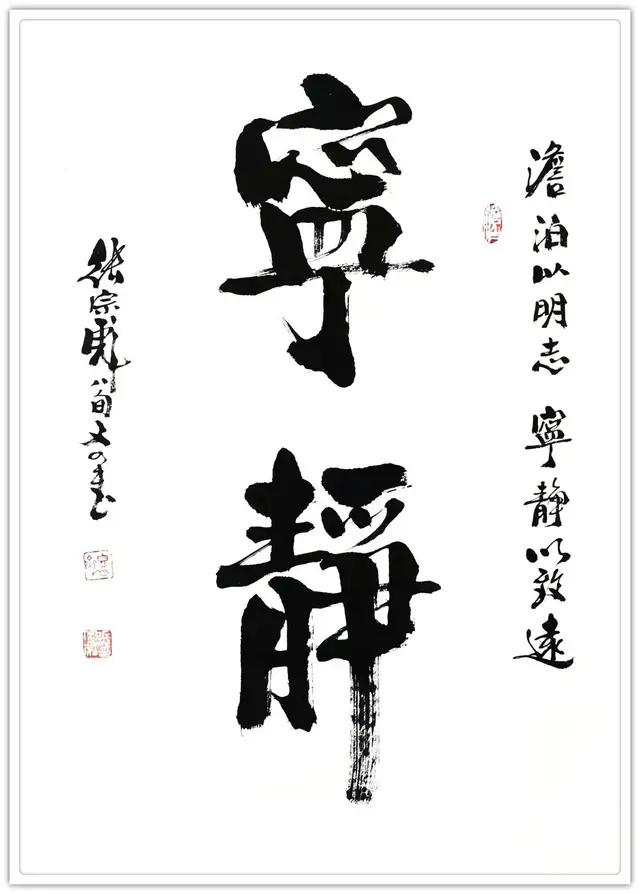 澹泊以明志 寧靜以致遠
寧靜
张宗彪 八旬又书